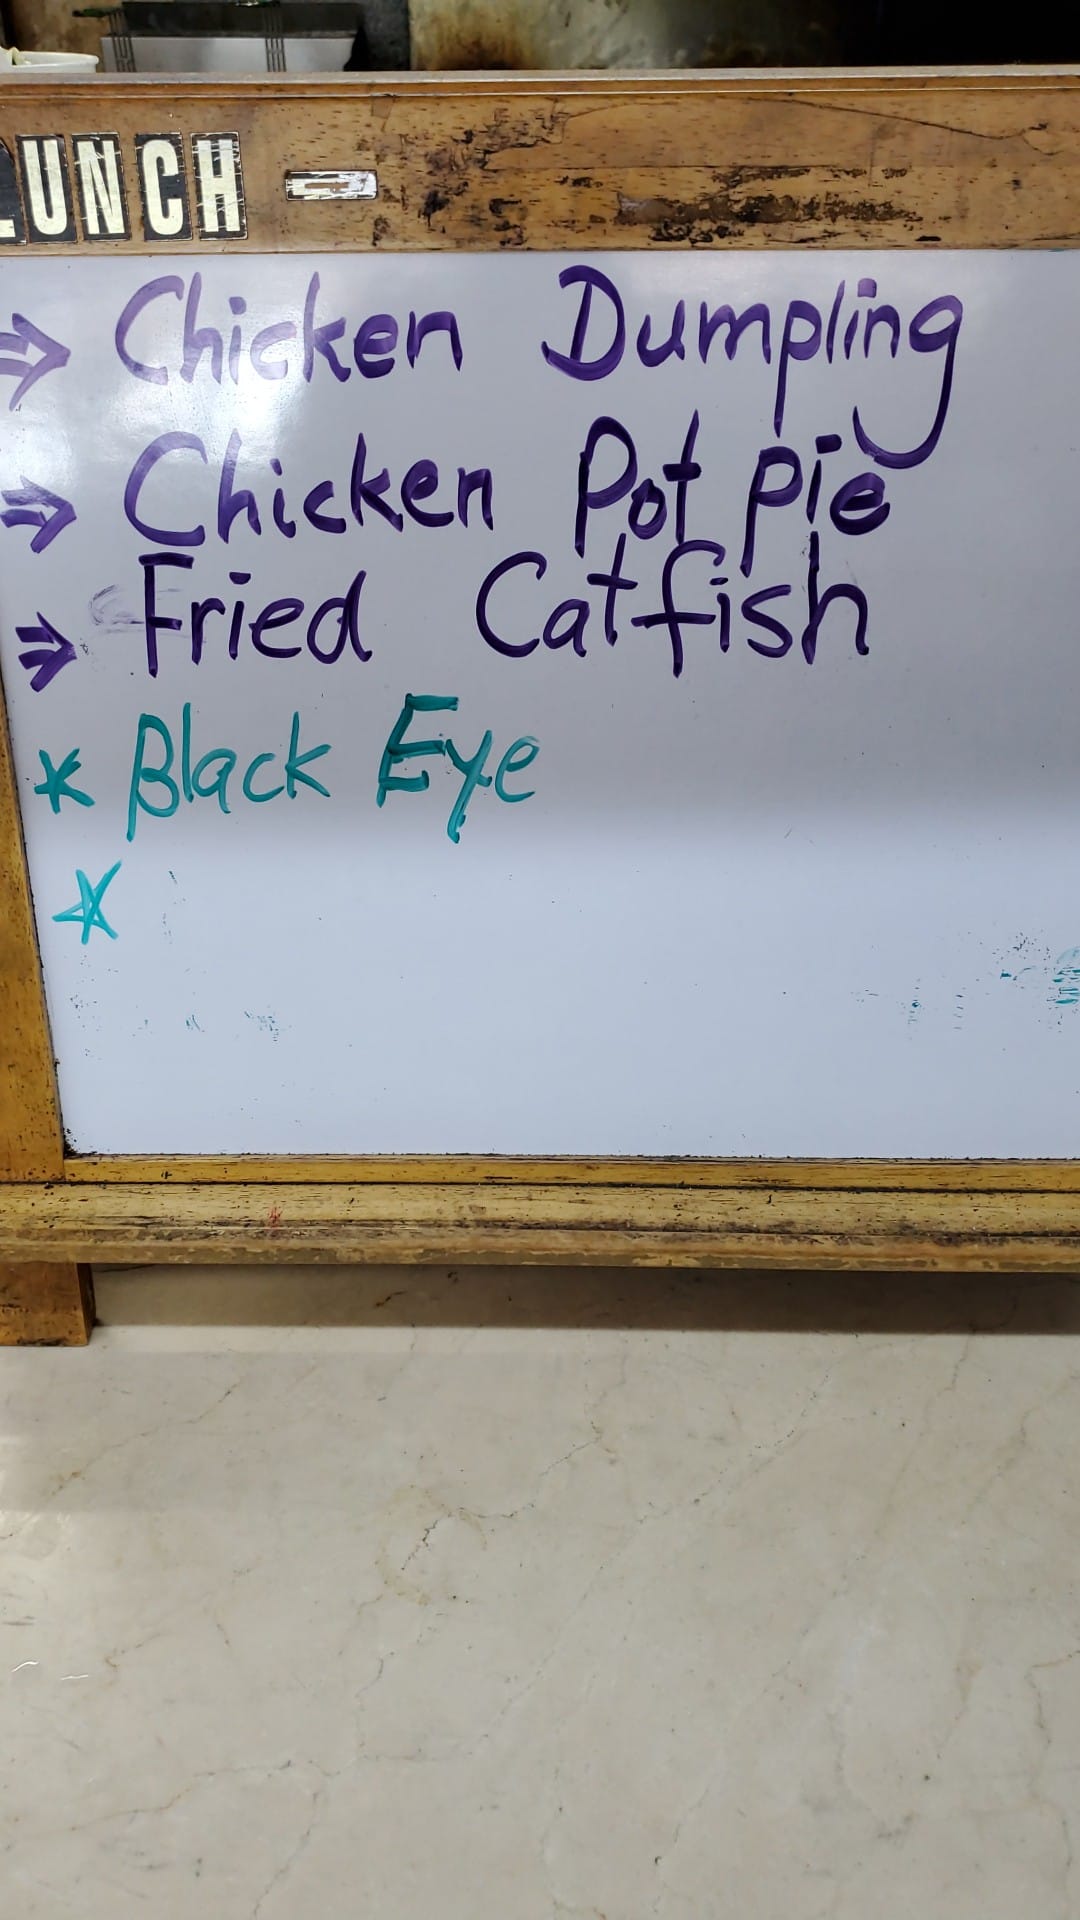 LUNCH -
⇒ Chicken Dumpling
⇒ Chicken Pot pie
⇒ Fried Catfish
* Black Eye
*